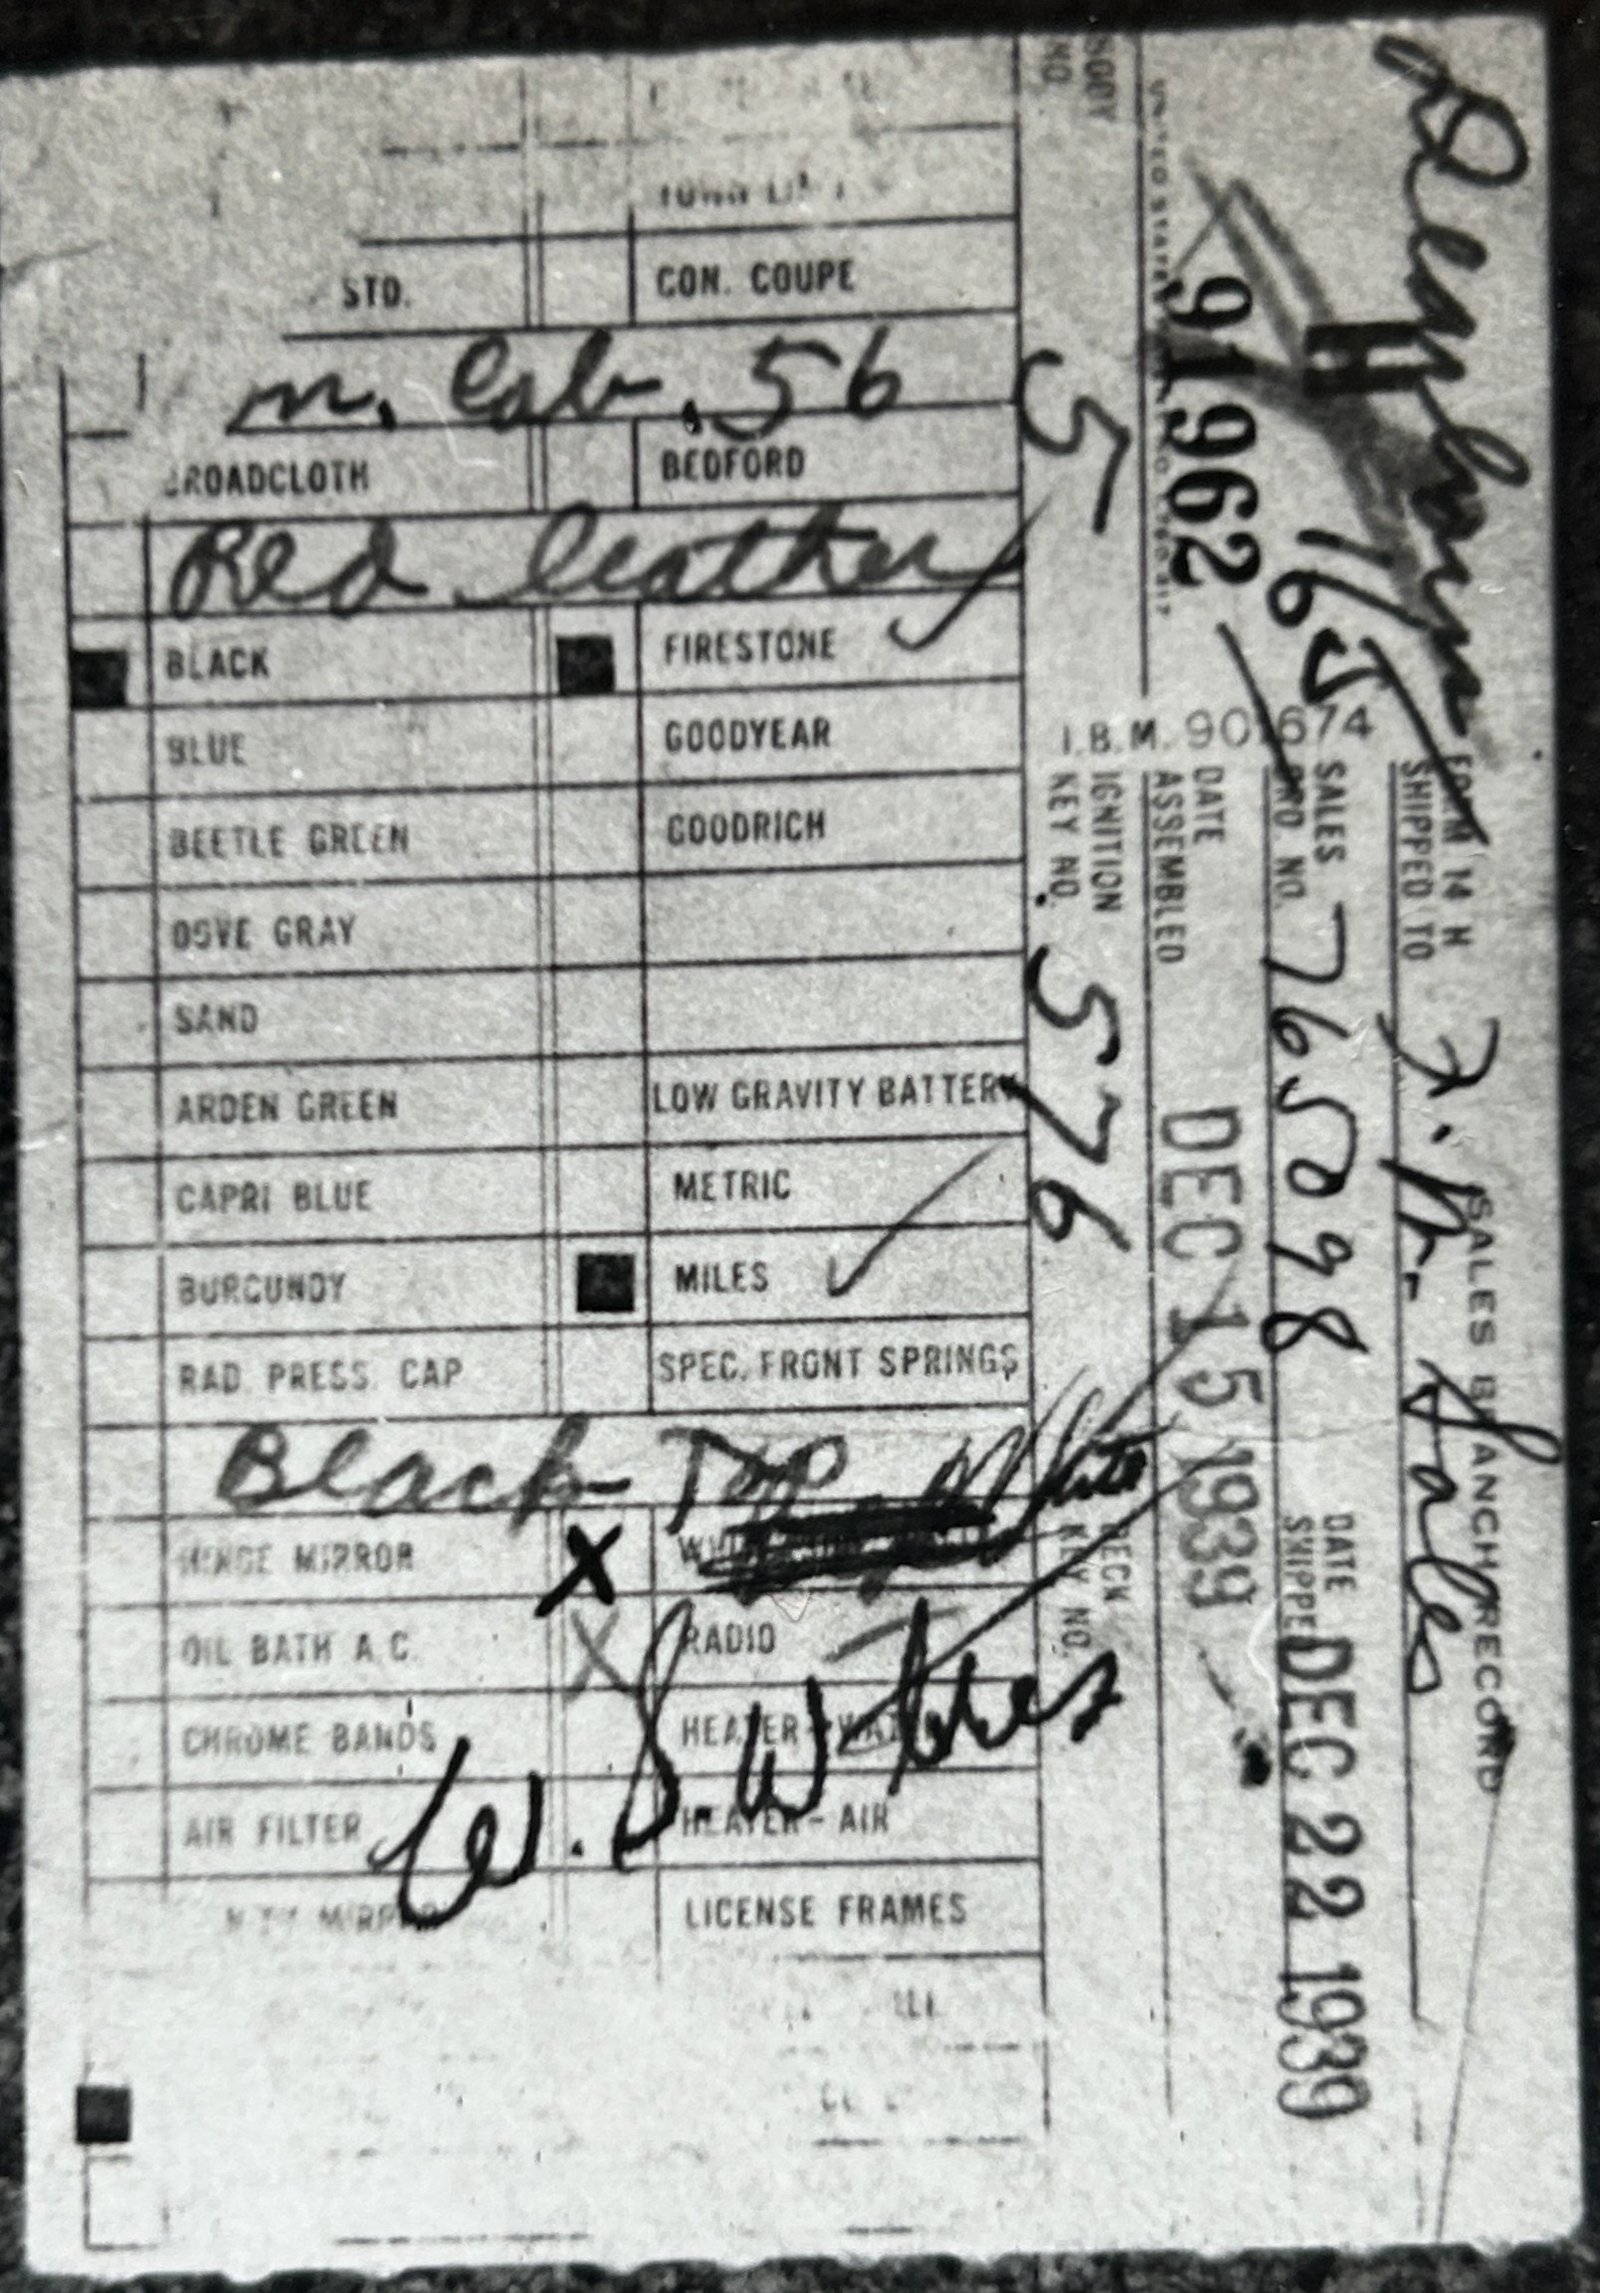 TOWN LIM
STD.
CON. COUPE
m. Cab. 56
BROADCLOTH
BEDFORD
Red leather
BLACK
FIRESTONE
BLUE
GOODYEAR
BEETLE GREEN
GOODRICH
DOVE GRAY
SAND
ARDEN GREEN
LOW GRAVITY BATTERY
CAPRI BLUE
METRIC
BURGUNDY
MILES
RAD. PRESS. CAP
SPEC. FRONT SPRINGS
Black Top White
HINGE MIRROR
X
OIL BATH A.C.
X
RADIO
CHROME BANDS
HEATER-WATER
W.S.W tires
AIR FILTER
HEATER-AIR
LICENSE FRAMES
BODY NO.
55
IGNITION KEY NO. 576
DECK KEY NO.
I.B.M. 901674
H 91962
DATE ASSEMBLED DEC 15 1939
765
SALES ORD. NO. 765098
DATE SHIPPED DEC 22 1939
FORM 14 H
SHIPPED TO
SALES BRANCH RECORD